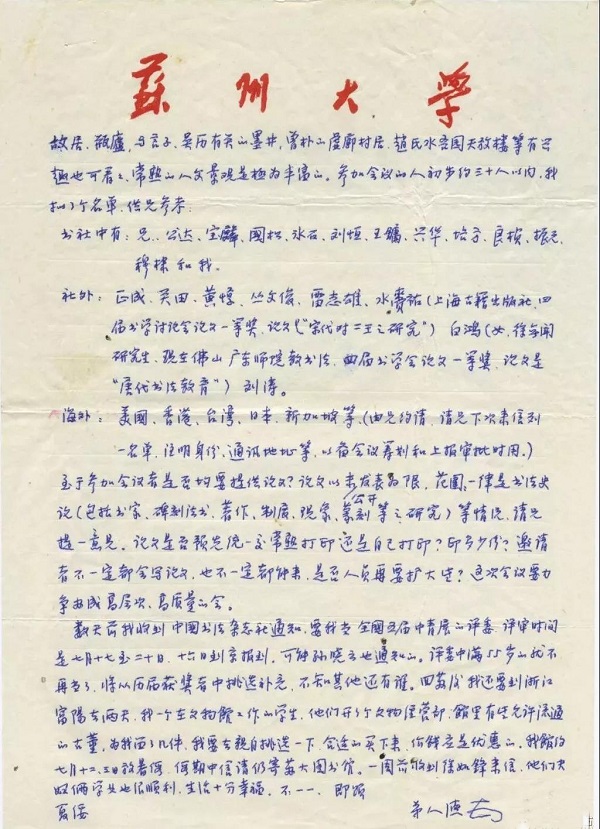 蘇州大学
故居、瓶廬、言子、吴历有关山墨井,曾朴山虚廓村居、赵氏水吾园天放楼等有兴
趣也可看之,常熟山人文景观是极为丰富山。参加会议山人初步约三十人以内,我
拟了个名单,供兄参考。
书社中有:兄、公达、宝麟、国松、冰石、刘恒、王镛、兴华、培方、良桢、振元、
穆棣和我。
社外:正成、英田、黄惇、丛文俊、雷志雄、水赉佑(上海古籍出版社,四
届书学讨论会论文一等奖,论文《"宋代对二王之研究") 白鸿(女,徐无闻
研究生,现在佛山广东师院教书法,四届书学会论文一等奖,论文是
"唐代书法教育") 刘涛。
海外:美國、香港、台湾、日本、新加坡等,(由兄约请,请兄下次来信列
一名单,注明身份、通讯地址等,以备会议筹划和上报审批时用。)
至于参加会议者是否均要提供论文?论文以未公开发表为限,范围一律是书法史
论(包括书家、碑刻法书、著作、制度、现象、篆刻等之研究)等情况,请兄
提一意见。论文是否预先统一交常熟打印还是自己打印?印多少份?邀请
者不一定都会写论文,也不一定都能来,是否人员再要扩大些?这次会议要力
争办成高层次、高质量山会。
数天前我收到中国书法杂志社通知,要我去全國五届中青展山评委,评审时间
是七月十七至二十日,十六日到京报到,可能孙晓云也通知山。评委中满55岁山就不
再当了,将从历届获奖者中挑选补充,不知其他还有谁。回苏后我还要到浙江
富陽去两天,我一个在文物館工作山学生,他们开了个文物经营部,館里有些允许流通
山古董,为我留了几件,我要去親自挑选一下,合适山买下来,价錢应是优惠山。我館约
七月十二、三日放暑假,假期中信请仍寄苏大图书馆。一周前收到徐如鋒来信,他们夫
妇俩学业也很顺利,生活十分幸福,不一一。即颂
夏绥 弟人德